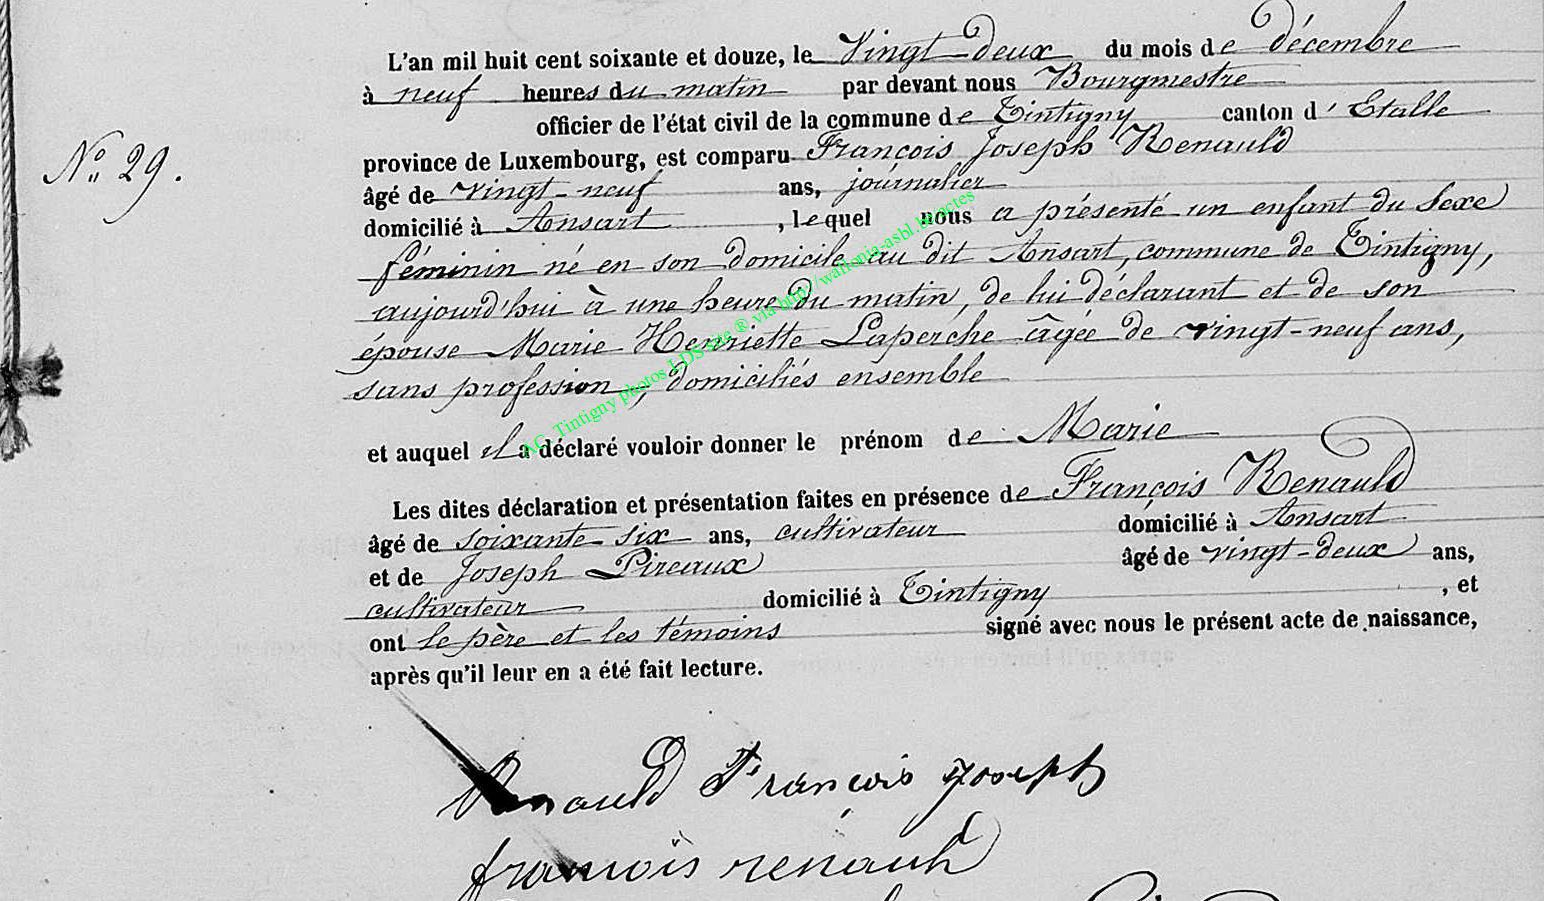 L'an mil huit cent soixante et douze, le Vingt-deux du mois de décembre
à neuf heures du matin par devant nous Bourgmestre
officier de l'état civil de la commune de Tintigny canton d'Etalle
N° 29.
province de Luxembourg, est comparu François Joseph Renauld
âgé de vingt-neuf ans, journalier
domicilié à Ansart, lequel nous a présenté un enfant du sexe
féminin né en son domicile au dit Ansart, commune de Tintigny,
aujourd'hui à une heure du matin, de lui déclarant et de son
épouse Marie Henriette Laperche âgée de vingt-neuf ans,
sans profession, domiciliés ensemble
et auquel il a déclaré vouloir donner le prénom de Marie
Les dites déclaration et présentation faites en présence de François Renauld
âgé de soixante six ans, cultivateur domicilié à Ansart
et de Joseph Pireaux âgé de vingt-deux ans,
cultivateur domicilié à Tintigny, et
ont le père et les témoins signé avec nous le présent acte de naissance,
après qu'il leur en a été fait lecture.
Renauld François Joseph
françois renauld
AG Tintigny photos LDS site ® via http://wallonia-asbl.be/actes